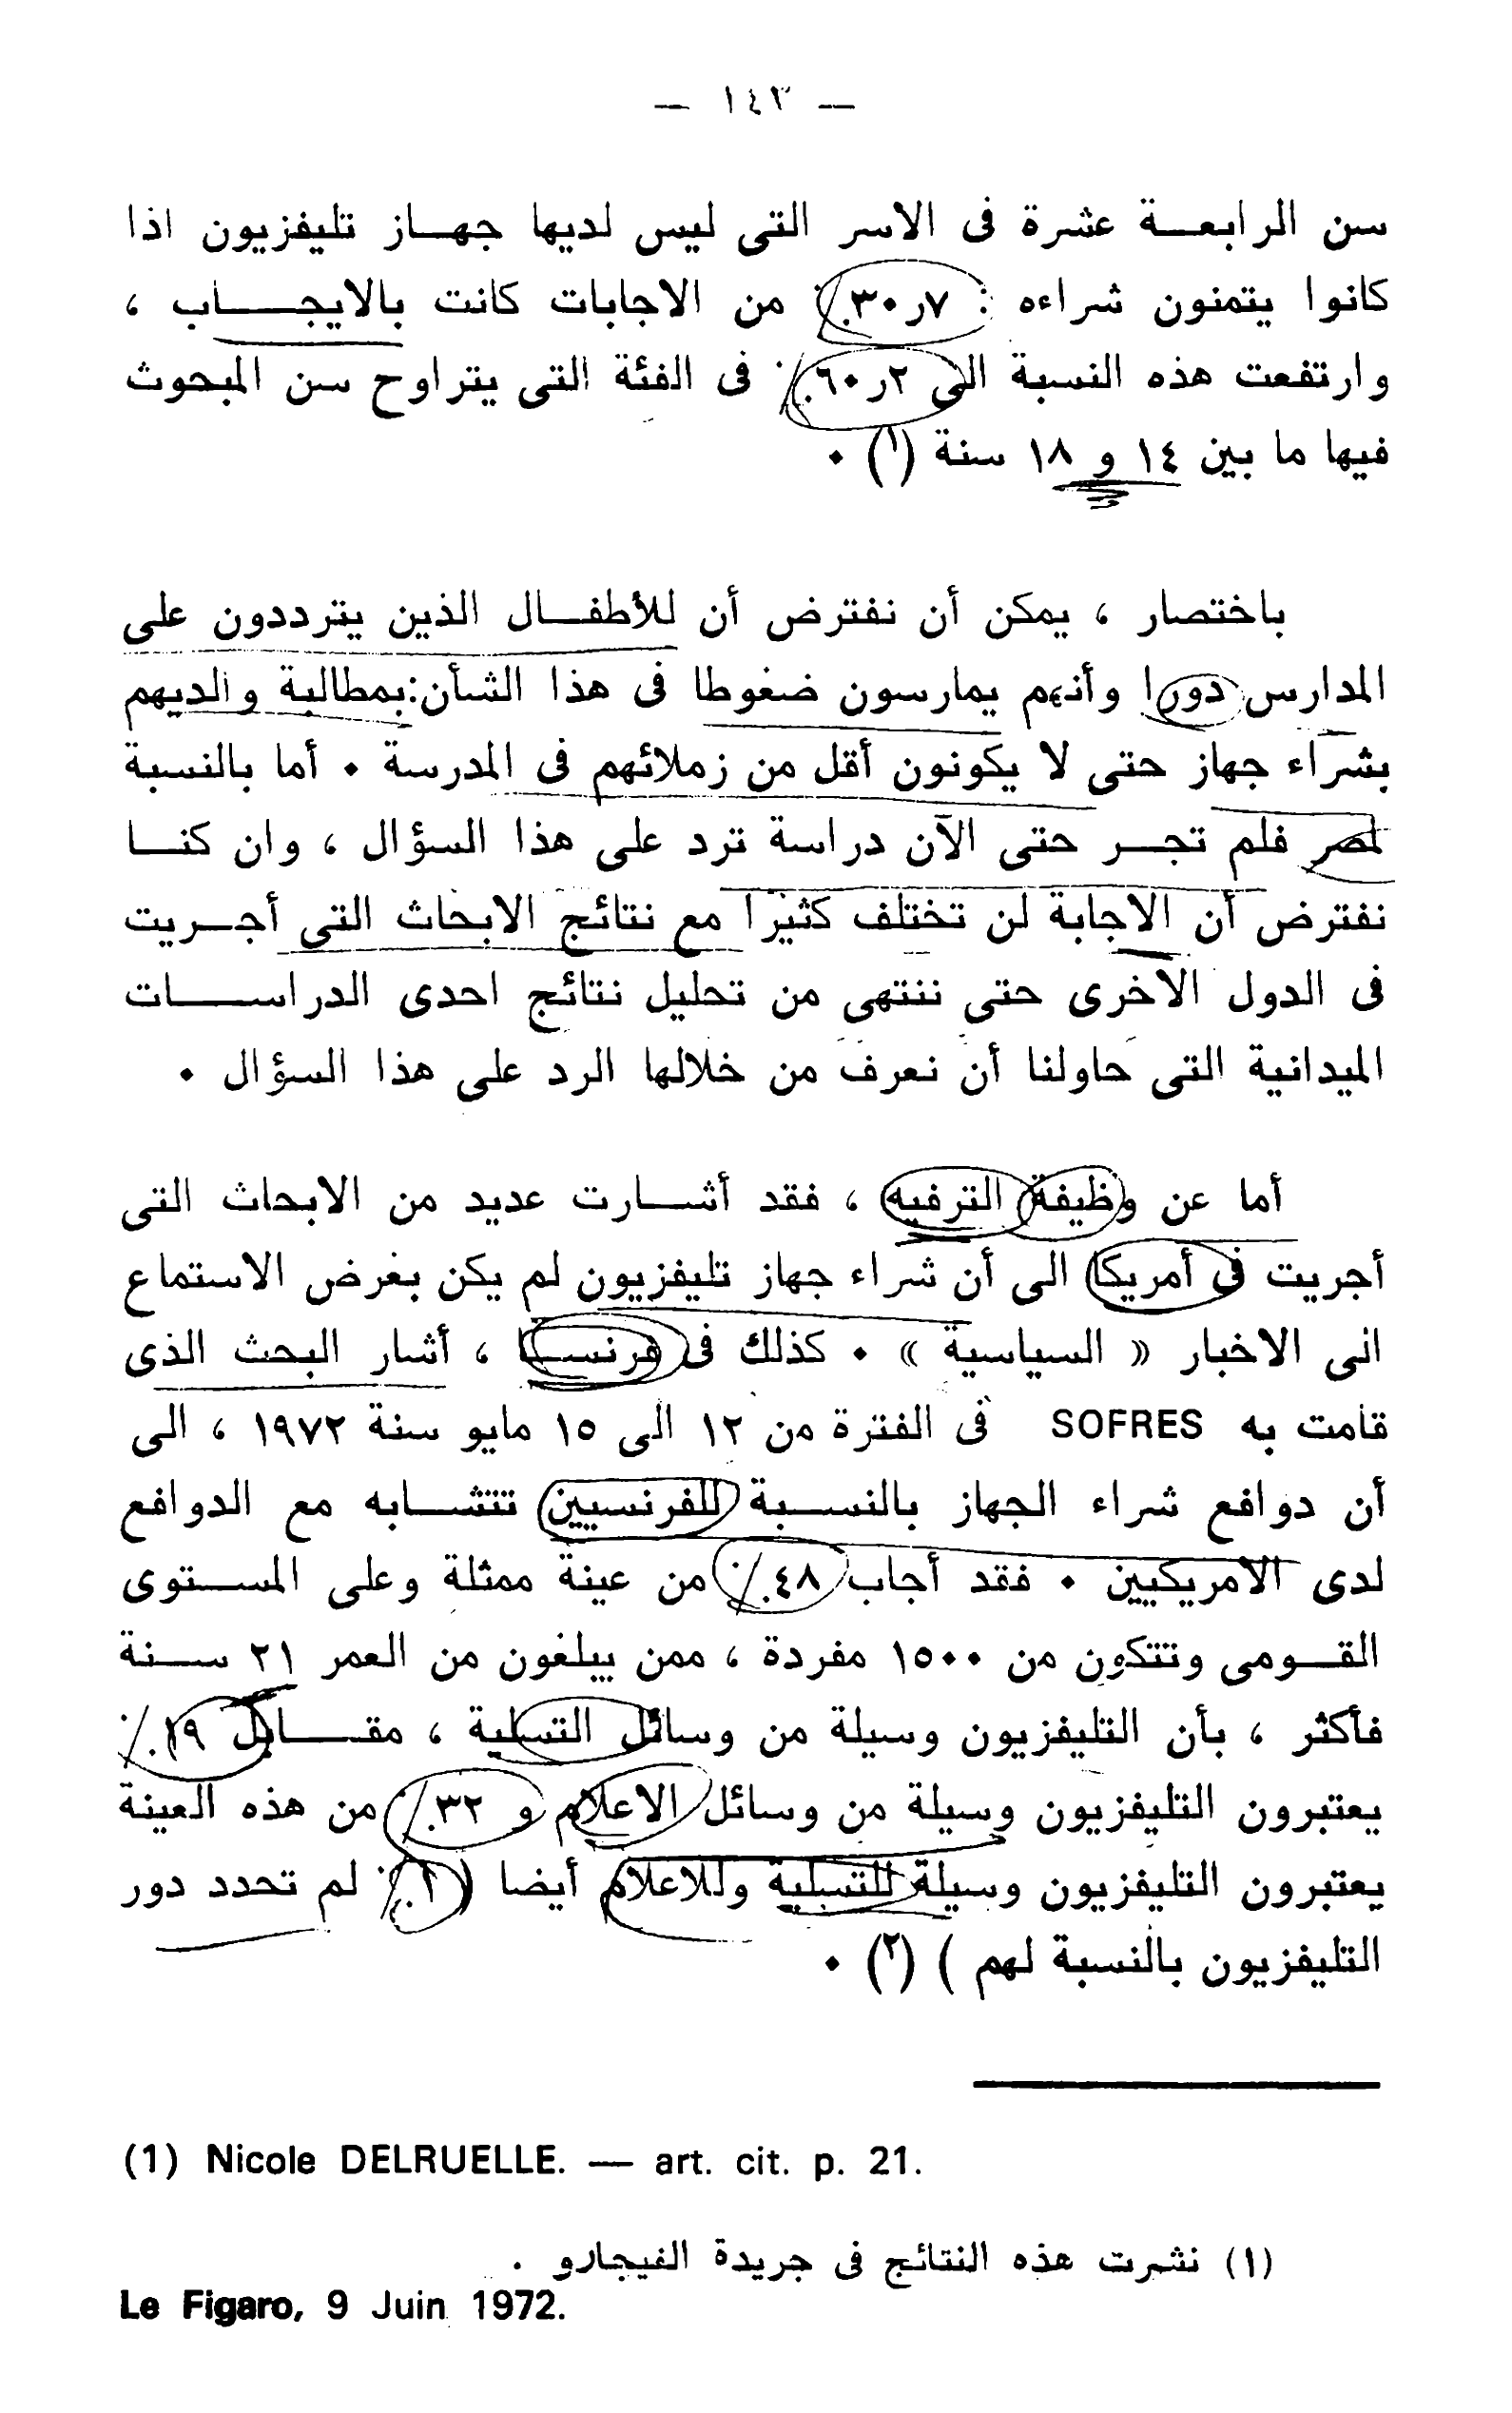 — ١٤٣ —
سن الرابعة عشرة فى الاسر التى ليس لديها جهاز تليفزيون اذا
كانوا يتمنون شراءه : ٧ر٣٠٪ من الاجابات كانت بالايجاب ،
وارتفعت هذه النسبة الى ٢ر٦٠٪ فى الفئة التى يتراوح سن المبحوث
فيها ما بين ١٤ و ١٨ سنة (١) ٠
باختصار ، يمكن أن نفترض أن للأطفال الذين يترددون على
المدارس دورا وأنهم يمارسون ضغوطا فى هذا الشأن:بمطالبة والديهم
بشراء جهاز حتى لا يكونون أقل من زملائهم فى المدرسة ٠ أما بالنسبة
لمصر فلم تجر حتى الآن دراسة ترد على هذا السؤال ، وان كنا
نفترض أن الاجابة لن تختلف كثيرا مع نتائج الابحاث التى أجريت
فى الدول الاخرى حتى ننتهى من تحليل نتائج احدى الدراسات
الميدانية التى حاولنا أن نعرف من خلالها الرد على هذا السؤال ٠
أما عن وظيفة الترفيه ، فقد أشارت عديد من الابحاث التى
أجريت فى أمريكا الى أن شراء جهاز تليفزيون لم يكن بغرض الاستماع
الى الاخبار « السياسية » ٠ كذلك فى فرنسا ، أشار البحث الذى
قامت به SOFRES فى الفترة من ١٢ الى ١٥ مايو سنة ١٩٧٢ ، الى
أن دوافع شراء الجهاز بالنسبة للفرنسيين تتشابه مع الدوافع
لدى الامريكيين ٠ فقد أجاب ٤٨٪ من عينة ممثلة وعلى المستوى
القومى وتتكون من ١٥٠٠ مفردة ، ممن يبلغون من العمر ٢١ سنة
فأكثر ، بأن التليفزيون وسيلة من وسائل التسلية ، مقابل ١٩٪
يعتبرون التليفزيون وسيلة من وسائل الاعلام و ٣٢٪ من هذه العينة
يعتبرون التليفزيون وسيلة للتسلية وللاعلام أيضا ( ١٪ لم تحدد دور
التليفزيون بالنسبة لهم ) (٢) ٠
(1) Nicole DELRUELLE. — art. cit. p. 21.
(١) نشرت هذه النتائج فى جريدة الفيجارو .
Le Figaro, 9 Juin 1972.